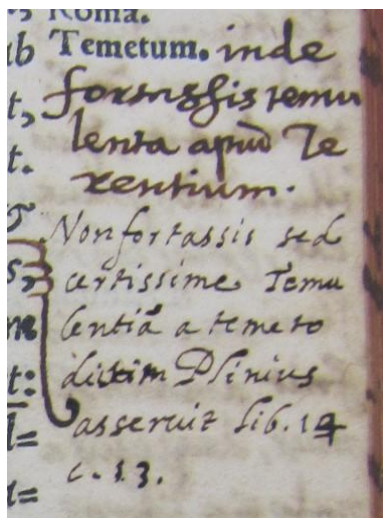 Roma.
ab Temetum. inde
t, fortassis temu
t. lenta apud Te
rentium.
Non fortassis sed
s, certissime Temu
lentiā a temeto
t: Plinius
l= asseruit lib. 14
c. 13.